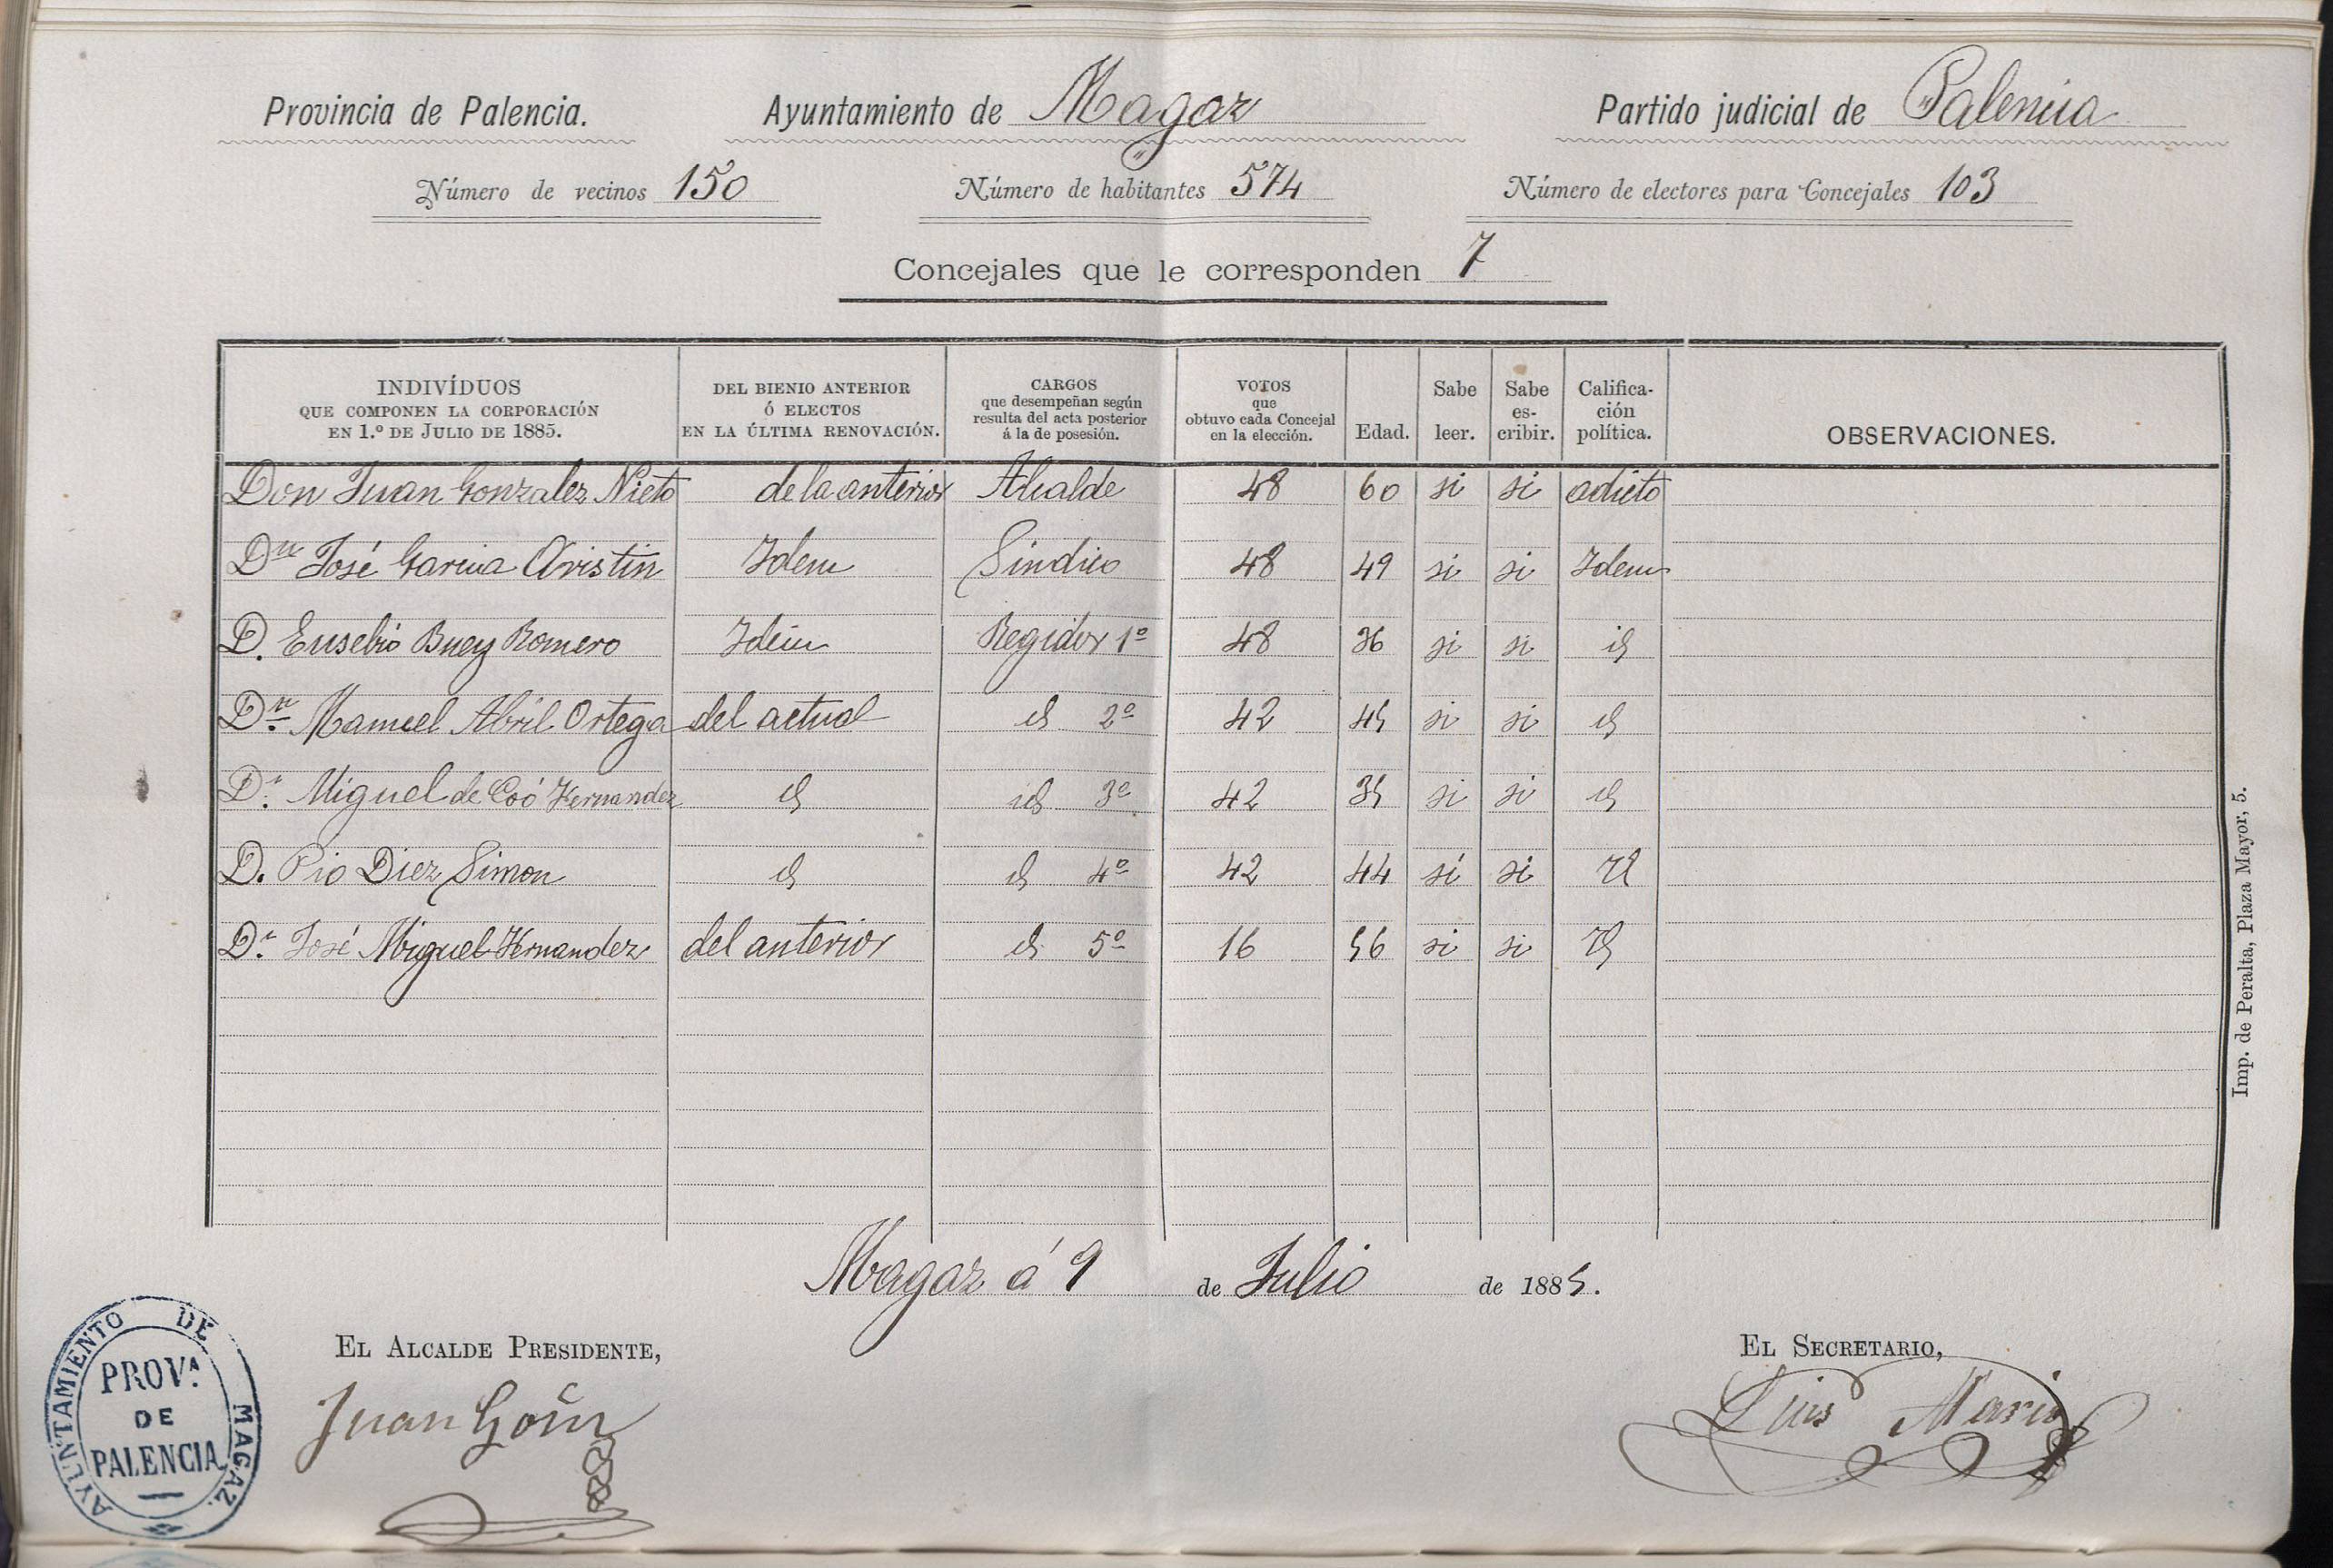 Provincia de Palencia. Ayuntamiento de Magaz Partido judicial de Palencia
Número de vecinos 150 Número de habitantes 574 Número de electores para Concejales 103
Concejales que le corresponden 7
INDIVÍDUOS QUE COMPONEN LA CORPORACIÓN EN 1.º DE JULIO DE 1885. DEL BIENIO ANTERIOR Ó ELECTOS EN LA ÚLTIMA RENOVACIÓN. CARGOS que desempeñan según resulta del acta posterior á la de posesión. VOTOS que obtuvo cada Concejal en la elección. Edad. Sabe leer. Sabe es-cribir. Califica-ción política. OBSERVACIONES.
Don Juan Gonzalez Nieto de la anterior Alcalde 48 60 si si adicto
Dn José Garcia Aristin Idem Sindico 48 49 si si Idem
D. Eusebio Buey Romero Idem Regidor 1º 48 36 si si id
Dn. Manuel Abril Ortega del actual id 2º 42 45 si si id
Dn. Miguel de Coó Hernandez id id 3º 42 35 si si id
D. Pio Diez Simon id id 4º 42 44 si si Id
Dn. José Miguel Hernandez del anterior id 5º 16 56 si si Id
Magaz á 9 de Julio de 1885.
EL ALCALDE PRESIDENTE, EL SECRETARIO,
Juan Luis
AYUNTAMIENTO DE MAGAZ.
PROV.A
DE
PALENCIA
Imp. de Peralta, Plaza Mayor, 5.